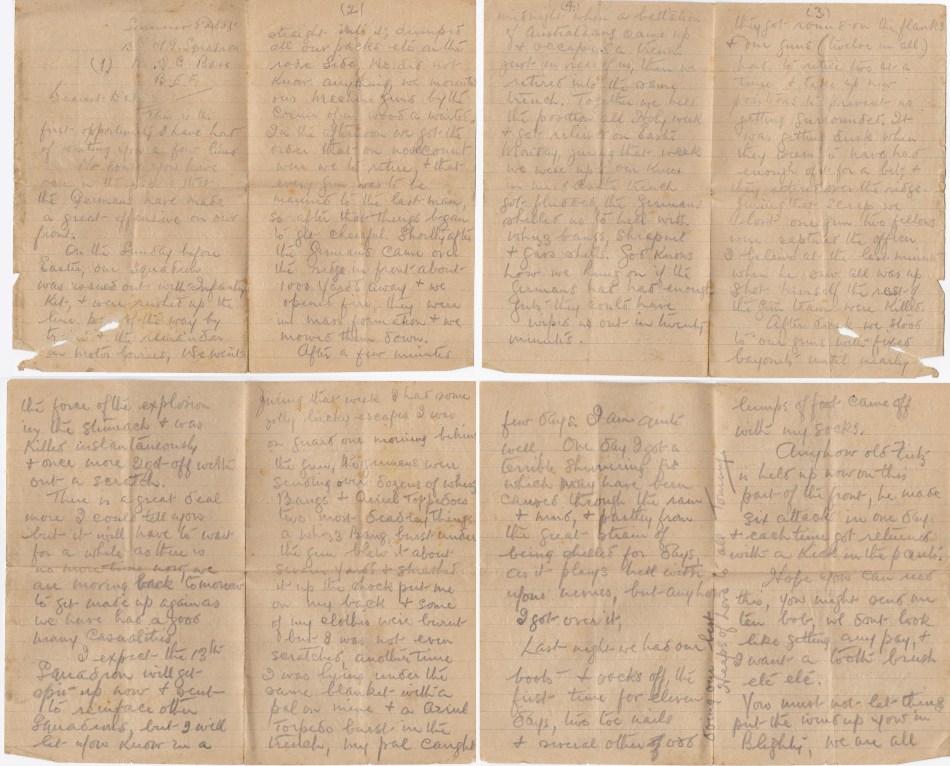 (1)
B.E.F.
Dearest Dad
This is the
first opportunity I have had
of writing you a few lines
No doubt you have
seen in the
the Germans have made
a great offensive on our
front.
On the Sunday before
Easter, our Squadron
was roused out with Infantry
Kit, & were rushed up the
line. of the way by
& the remainder
on motor lorries, We went
(2)
straight into it; dumped
all our packs etc on the
road side, We did not
know anything, we mounted
our machine guns by the
corner of a wood & waited,
In the afternoon we got the
order that on no account
were we to retire, & that
every gun was to be
manned to the last man,
so after that things began
to get cheerful. Shortly after
the Germans came over
the ridge in front about
1000 yards away & we
opened fire, they were
in mass formation & we
mowed them down.
After a few minutes
(3)
they got round on the flanks
& our guns (twelve in all)
had to retire two at a
time & take up new
positions to prevent us
getting surrounded. It
was getting dusk when
they seem to have had
enough of it for a bit, &
they retired over the ridge.
During that scrap we
lost one gun two fellows
were captured the officer
I believe at the last minute
when he saw all was up
shot himself the rest of
the gun team were killed.
After dusk we stood
to our guns with fixed
bayonets until nearly
(4)
midnight when a battalion
of Australians came up
& occupied a trench
just in rear of us, then we
retired into the same
trench. Together we held
the position all Holy week
& got relieved on Easter
Monday, during that week
we were up to our knees
in mud & the trench
got flooded, the Germans
shelled us to hell with
whizz bangs, shrapnel
& gas shells. God knows
how we hung on if the
Germans had had enough
guts they could have
wiped us out in twenty
minutes.
During that week I had some
jolly lucky escapes I was
on guard one morning behind
the gun, the Germans were
sending over dozens of whizz
Bangs & Aerial Torpedoes
two most deadly things
a whizz Bang, burst under
the gun blew it about
seven yards & smashed
it up the shock put me
on my back & some
of my clothes were burnt
but I was not even
scratched, another time
I was lying under the
same blanket with a
pal on mine & a Aerial
Torpedo burst in the
trench, my pal caught
the force of the explosion
in the stomach & was
killed instantaneously
& once more I got off with
out a scratch.
There is a great deal
more I could tell you
but it will have to wait
for a while as there is
no more time now, we
are moving back tomorrow
to get made up again as
we have had a good
many Casualties.
I expect the 13th
Squadron will get
split up now & sent
to reinforce other
Squadrons, but I will
let you know in a
few days. I am quite
well, One day I got a
terrible shivering fit
which may have been
caused through the rain
& mud, & partly from
the great strain of
being shelled for days,
as it plays hell with
your nerves, but anyhow
I got over it,
Last night we had our
boots & socks off, the
first time for eleven
days, two toe nails
& several other odd
lumps of foot came off
with my socks.
Anyhow old Fritz
is held up now on this
part of the front, he made
six attack in one day
& each time got returned
with a kick in the pants.
Hope you can read
this, you might send me
ten bob, we dont look
like getting any pay, &
I want a tooth brush
etc etc.
You must not let things
put the wind up you in
Blighty, we are all
doing our best
Heaps of Love to all Tommy